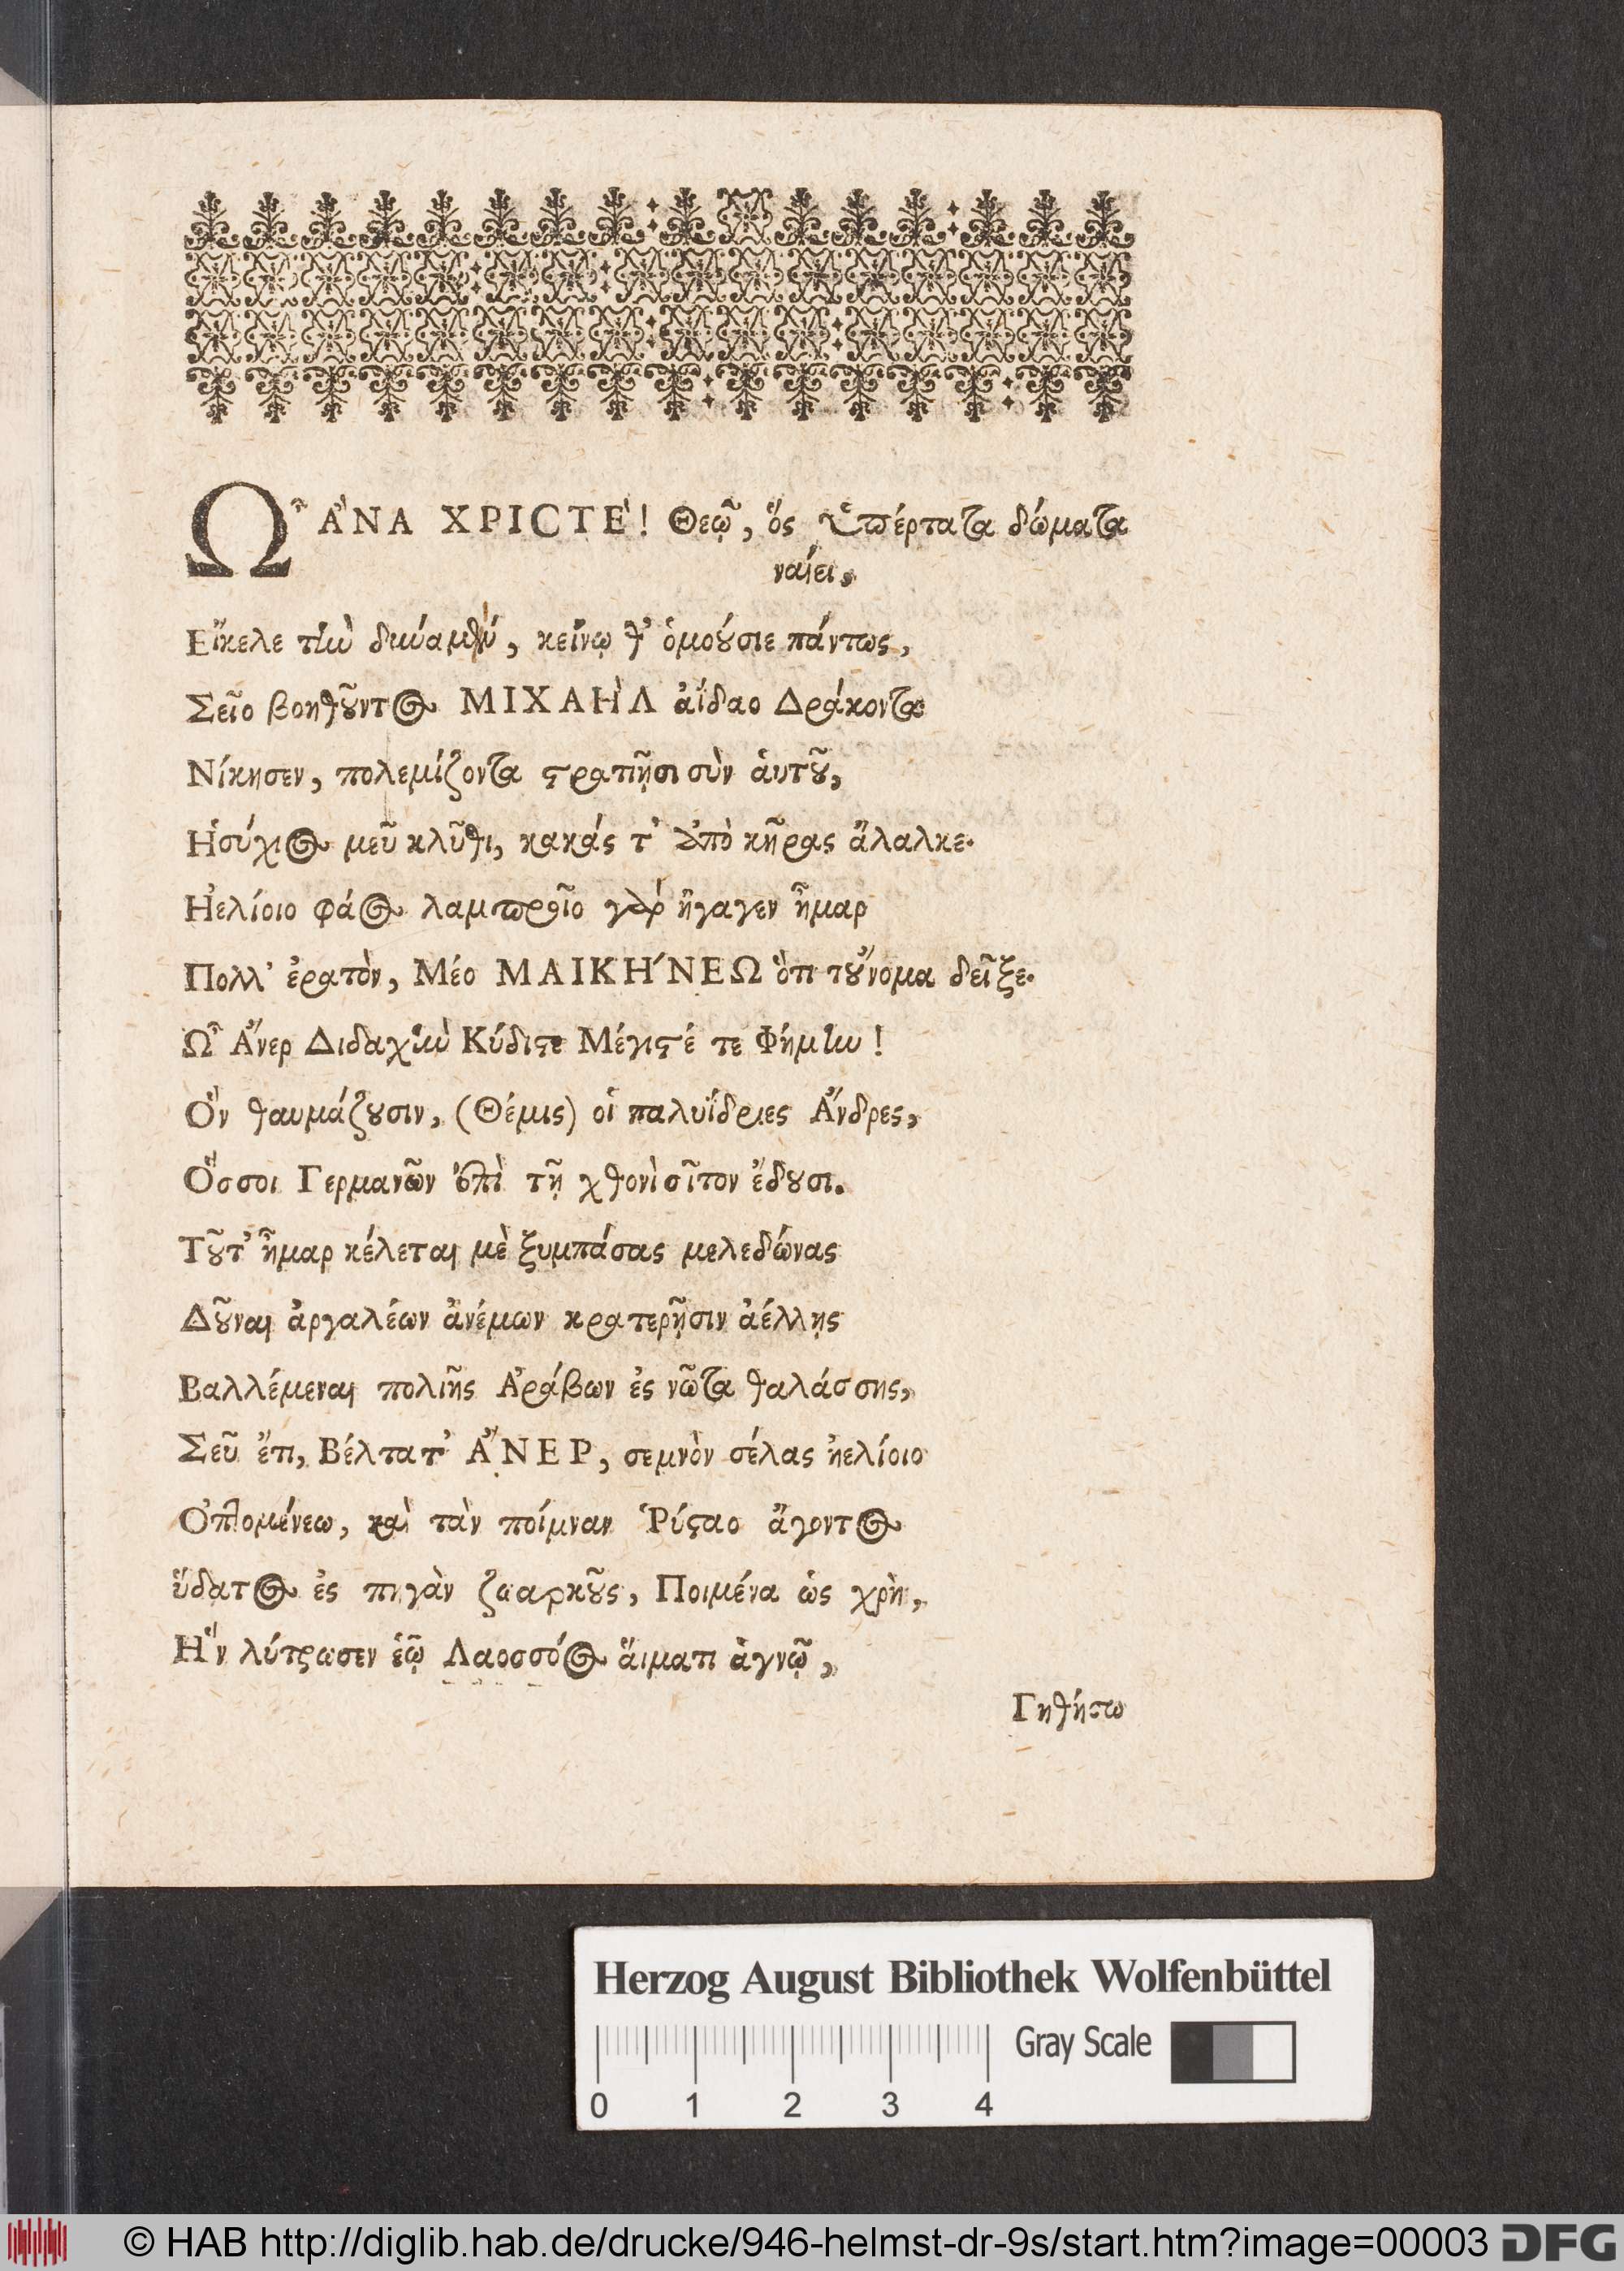 Ὦ ἌΝΑ ΧΡΙϹΤῈ! Θεῷ, ὅς ὑπέρτατα δώματα
ναίει,
Εἴκελε τὴν δύναμιν, κείνῳ θ' ὁμούσιε πάντως,
Σεῖο βοηθοῦντος ΜΙΧΑῊΛ ἀΐδαο Δράκοντα
Νίκησεν, πολεμίζοντα στρατιῇσι σὺν ἁυτοῦ,
Ἡσύχιος μεῦ κλῦθι, κακάς τ' ἀπὸ κῆρας ἄλαλκε.
Ἠελίοιο φάος λαμπροῖο γὰρ ἤγαγεν ἦμαρ
Πολλ' ἐρατὸν, Μέο ΜΑΙΚΗΝΕΩ ὅτι τοὔνομα δεῖξε.
Ὦ Ἄνερ Διδαχὴν Κύδιστε Μέγιστέ τε Φήμην!
Ὃν θαυμάζουσιν, (Θέμις) οἱ παλυΐδριες Ἄνδρες,
Ὅσσοι Γερμανῶν ἐπὶ τῇ χθονὶ σῖτον ἔδουσι.
Τοῦτ' ἦμαρ κέλεται μὲ ξυμπάσας μελεδώνας
Δοῦναι ἀργαλέων ἀνέμων κρατερῇσιν ἀέλλῃς
Βαλλέμεναι πολιῆς Ἀράβων ἐς νῶτα θαλάσσης,
Σεῦ ἔτι, Βέλτατ' ἌΝΕΡ, σεμνὸν σέλας ἠελίοιο
Ὀπτομένεω, καὶ τὰν ποίμναν Ῥύσαο ἄγοντος
ὕδατος ἐς πηγὰν ζωαρκοῦς, Ποιμένα ὡς χρὴ,
Ἣν λύτρωσεν ἑῷ Λαοσσόος ἅιματι ἁγνῷ,
Γηθήτω
Herzog August Bibliothek Wolfenbüttel
Gray Scale
0 1 2 3 4
© HAB http://diglib.hab.de/drucke/946-helmst-dr-9s/start.htm?image=00003 DFG